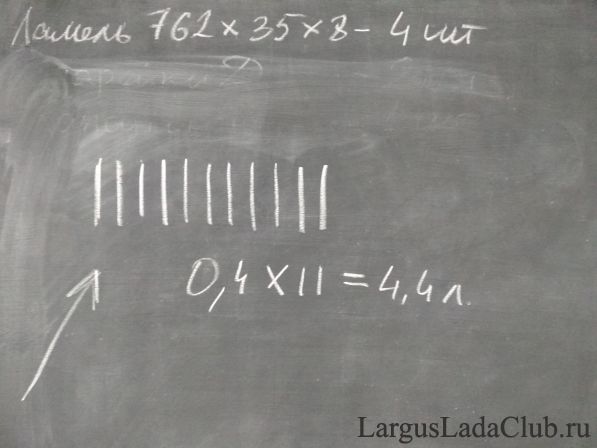 Ламель 762×35×8 - 4 шт
0,4×11=4,4л.
LargusLadaClub.ru